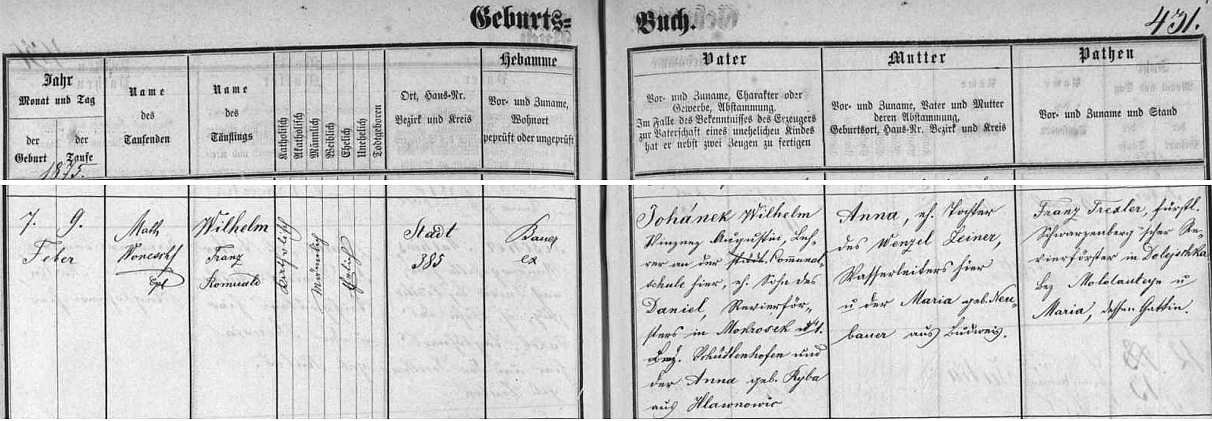 Geburts=
Buch.
431.
Jahr
Monat und Tag
der Geburt
der Taufe
1875.
Name des Taufenden
Name des Täuflings
Katholisch
Akatholisch
Männlich
Weiblich
Ehelich
Unehelich
Todtgeboren
Ort, Haus-Nr.
Bezirk und Kreis
Hebamme
Vor- und Zuname,
Wohnort
geprüft oder ungeprüft
Vater
Vor- und Zuname, Charakter oder
Gewerbe, Abstammung.
Im Falle des Bekenntnisses des Erzeugers
zur Vaterschaft eines unehelichen Kindes
hat er nebst zwei Zeugen zu fertigen
Mutter
Vor- und Zuname, Vater und Mutter
deren Abstammung,
Geburtsort, Haus-Nr. Bezirk und Kreis
Pathen
Vor- und Zuname und Stand
7. 9.
Feber
Math
Wilhelm
Franz
Romuald
Katholisch
Männlich
Ehelich
Stadt
385
Johánek Wilhelm
Vinzenz Augustin, Leh-
rer an der Kommunal-
schule hier, eh. Sohn des
Daniel, Revierför-
sters in Mokrosek
Bez. Schüttenhofen und
der Anna geb. Ryba
aus Hlawnowic
Anna, eh. Tochter
des Wenzel Zeiner,
Wasserleiters hier
u der Maria geb. Neu-
bauer aus Budweis.
Franz Trexler, fürstl.
Schwarzenberg'scher Re-
vierförster in
bei Moldautein u
Maria, dessen Gattin.